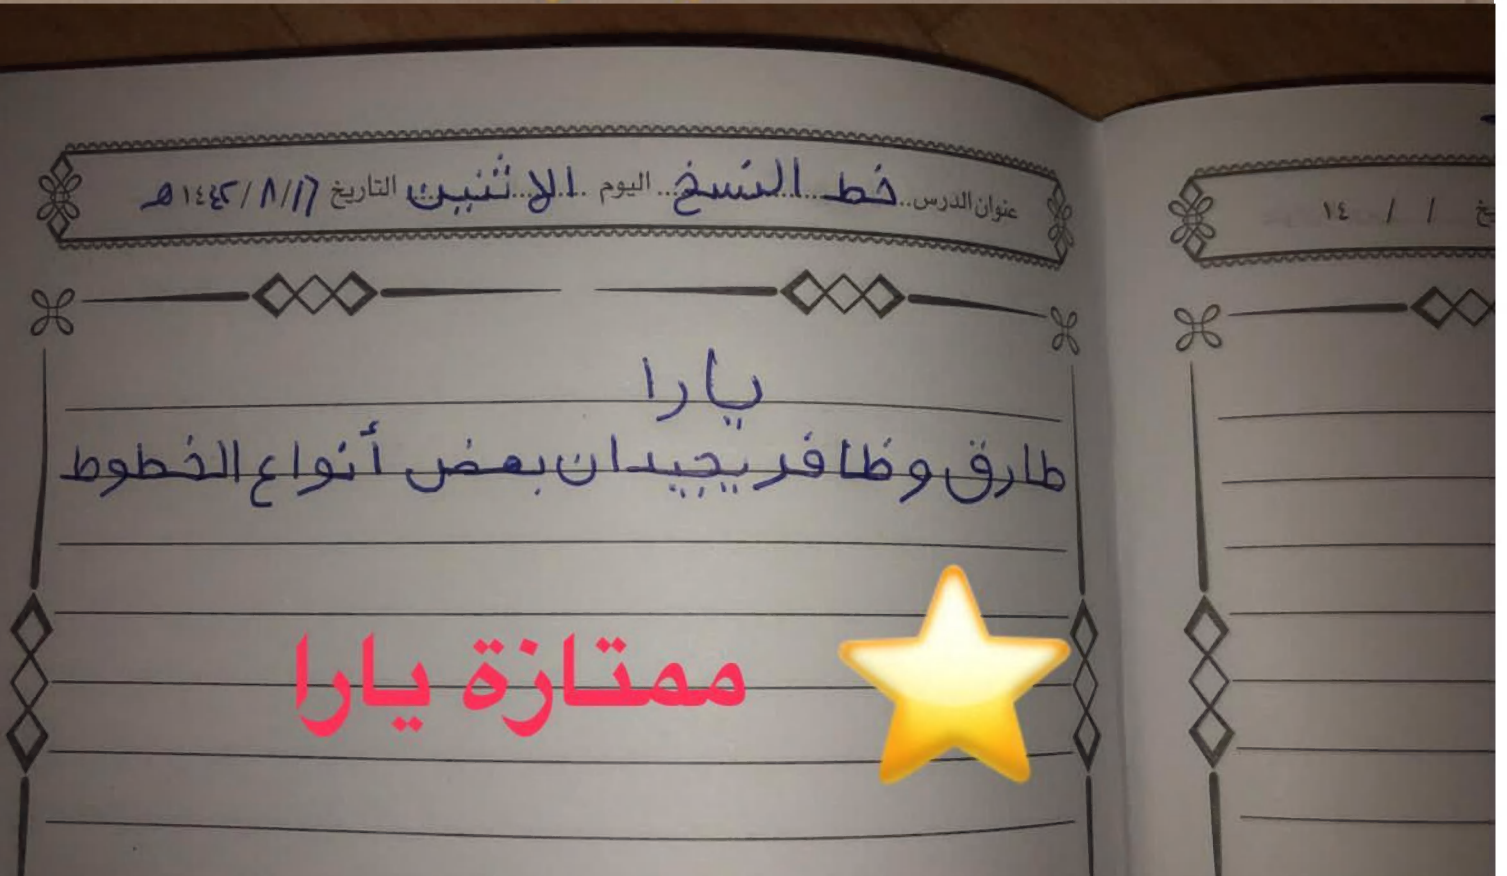 عنوان الدرس..خط النسخ... اليوم ...الاثنين.. التاريخ ١٦/ ٨/ ١٤٤٢هـ
خ / / ١٤
يارا
طارق وظافر يجيدان بعض أنواع الخطوط
ممتازة يارا